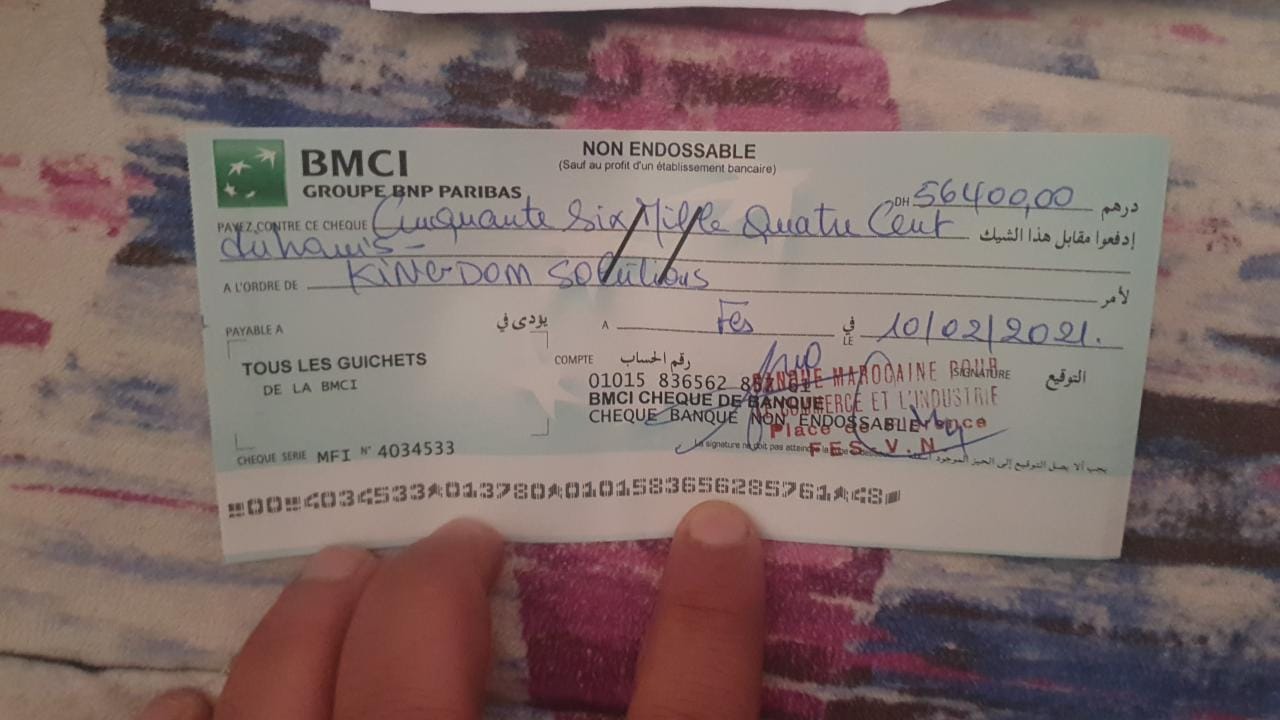 BMCI
GROUPE BNP PARIBAS
NON ENDOSSABLE
(Sauf au profit d'un établissement bancaire)
DH 56400,00 درهم
PAYEZ CONTRE CE CHEQUE Cinquante Six Mille Quatre Cent إدفعوا مقابل هذا الشيك
duhams-
A L'ORDRE DE KINGDOM Solutions لأمر
PAYABLE A يؤدى في
A Fes في LE 10/02/2021.
TOUS LES GUICHETS
DE LA BMCI
COMPTE رقم الحساب
SIGNATURE التوقيع
01015 836562
BMCI CHEQUE DE BANQUE
CHEQUE BANQUE NON ENDOSSABLE
BANQUE MAROCAINE POUR
COMMERCE ET L'INDUSTRIE
Place de
FES-V.N
La signature ne doit pas
يجب ألا يصل التوقيع إلى الحيز الموجود
CHEQUE SERIE MFI N° 4034533
4034533 013780 0101583656285761 48